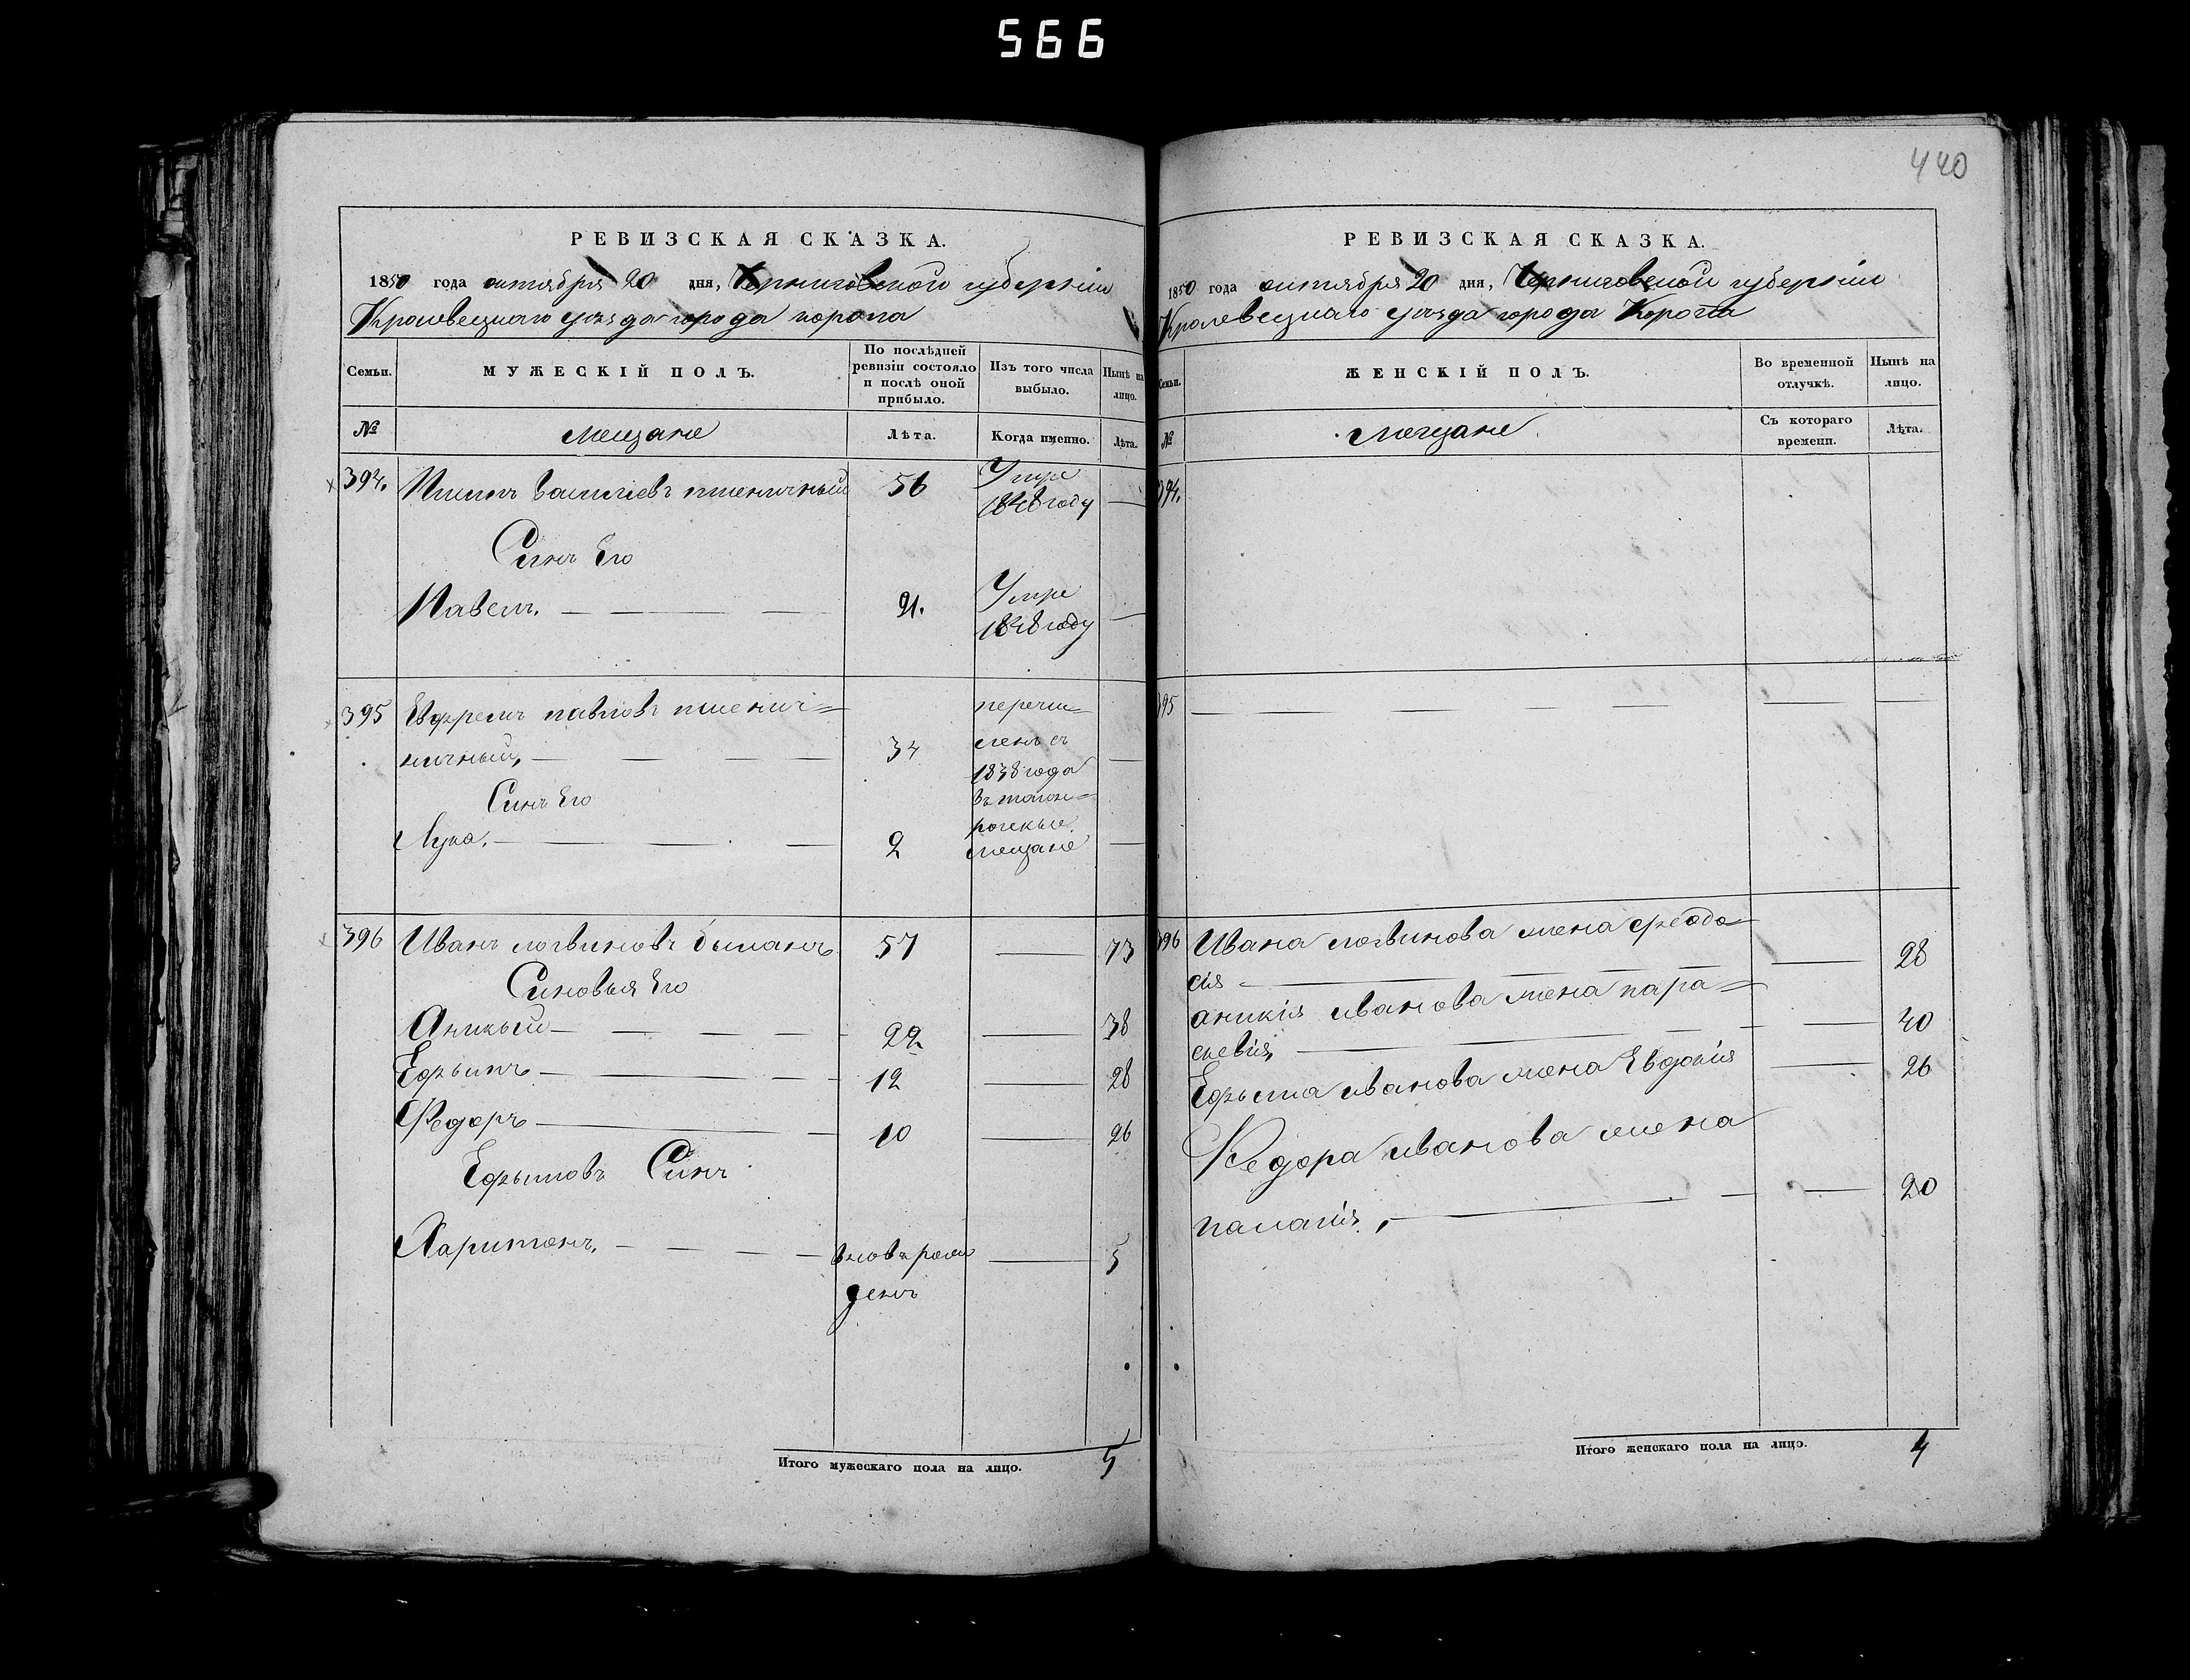 566
440
РЕВИЗСКАЯ СКАЗКА.
1850 года октября 20 дня, Черниговской губерніи
Кролевецкаго уѣзда города коропа
Семьи.
МУЖЕСКІЙ ПОЛЪ.
По послѣдней ревизіи состояло и послѣ оной прибыло.
Изъ того числа выбыло.
Нынѣ на лицо.
№
мещане
Лѣта.
Когда именно.
Лѣта.
394. Василіев пшеничный 56 Умре 1848 году —
Синъ Его
Павелъ. — 21. Умре 1848 году —
395 Евфремъ павловъ пшенич=
ничный, — 34 перечи=
сленъ съ
1838 года
Синъ Его въ таган=
Лука. — 2 рогскые
мещане —
396 Иванъ логвиновъ 57 — 73
Синовья Его
Аникый — 22 — 38
Ефымъ — 12 — 28
Федоръ — 10 — 26
Ефымовъ Синъ
Харитонъ. — вновь рож
денъ — 5
Итого мужескаго пола на лицо. 5
РЕВИЗСКАЯ СКАЗКА.
1850 года октября 20 дня, Черниговской губерніи
Кролевецкаго уѣзда города Коропа
Семьи.
ЖЕНСКІЙ ПОЛЪ.
Во временной отлучкѣ.
Нынѣ на лицо.
№
мещане
Съ котораго времени.
Лѣта.
394.
395 —
396 Ивана логвинова жена феодо=
сія — 28
аникія иванова жена пара=
скевія, — 40
Ефыма иванова жена Евдокія — 26
Федора иванова жена
палагія, — 20
Итого женскаго пола на лицо. 4